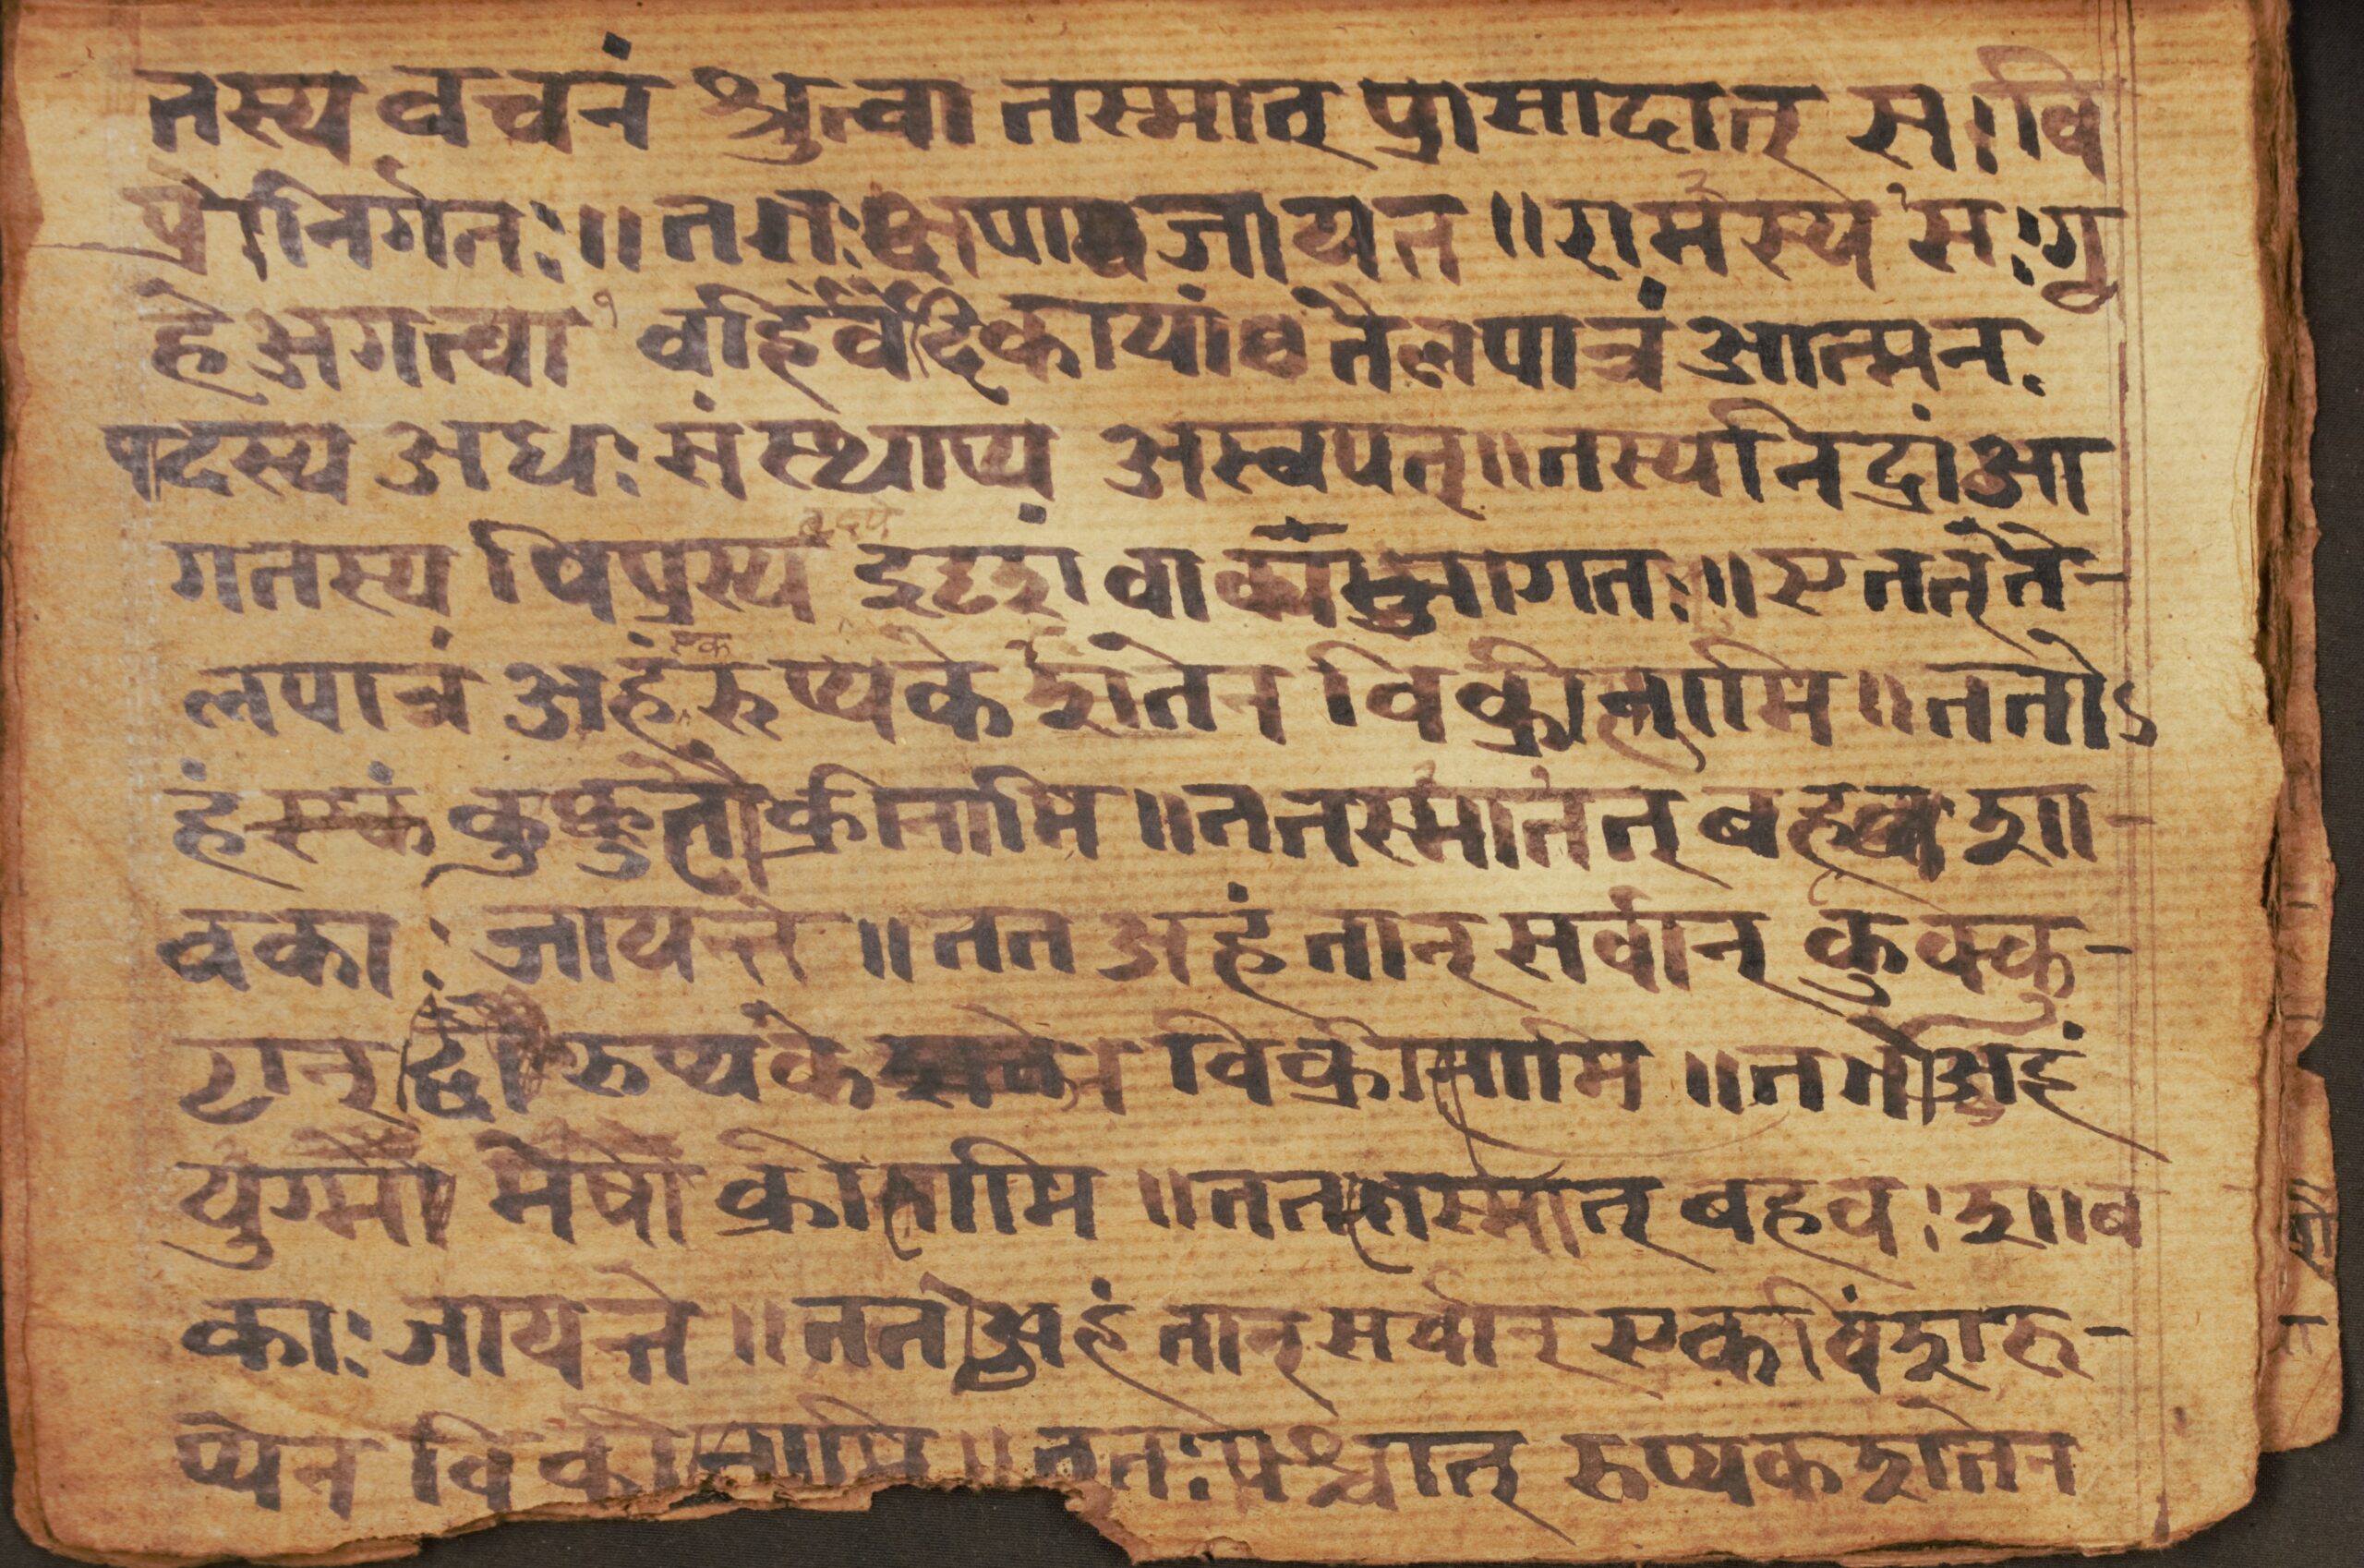 तस्य वचनं श्रुत्वा तस्मात् प्रासादात् स। वि
प्रो निर्गतः॥ ततः क्षपा जायत॥ रामस्य सः गृ
हे अगत्वा वहिर्वेदिकायां तैलपात्रं आत्मनः
पदस्य अधः संस्थाप्य अस्वपत्॥ तस्य निद्रां आ
गतस्य विप्रस्य इदृशं आगतः॥ एतत् तै-
लपात्रं अहं एक रुप्यके शतेन विक्रीनामि॥ ततोऽ
हं एकं कुक्कुतौ क्रीनामि॥ बहव शा-
वकाः जायन्ते॥ तत अहं तान् सर्वान् कुक्कु-
टान् द्वौ रुप्यके विक्रीनामि॥ ततो अहं
युग्मौ मेषौ क्रीनामि॥ तत तस्मात् बहवः शाव
काः जायन्ते॥ ततो अहं तान् सर्वान् एकविंश रु-
प्येन विक्रीनामि॥ ततः पश्चात् रुप्यकशतेन